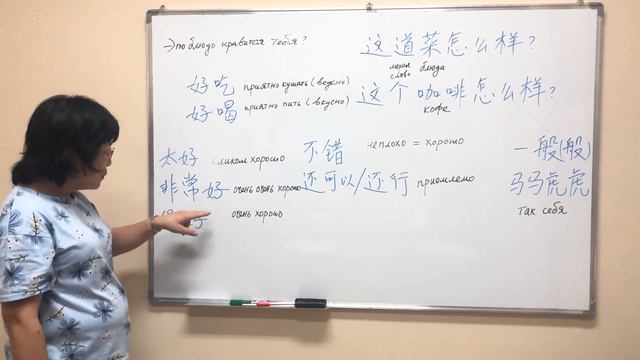 → по блюдо нравится тебя? 这道菜怎么样?
блюда
好吃 приятно кушать (вкусно)
好喝 приятно пить (вкусно) 这个咖啡怎么样?
кофе
太好 слишком хорошо 不错 неплохо = хорошо 一般(般)
非常好 очень очень хорошо 还可以/还行 приемлемо 马马虎虎
очень хорошо так себя